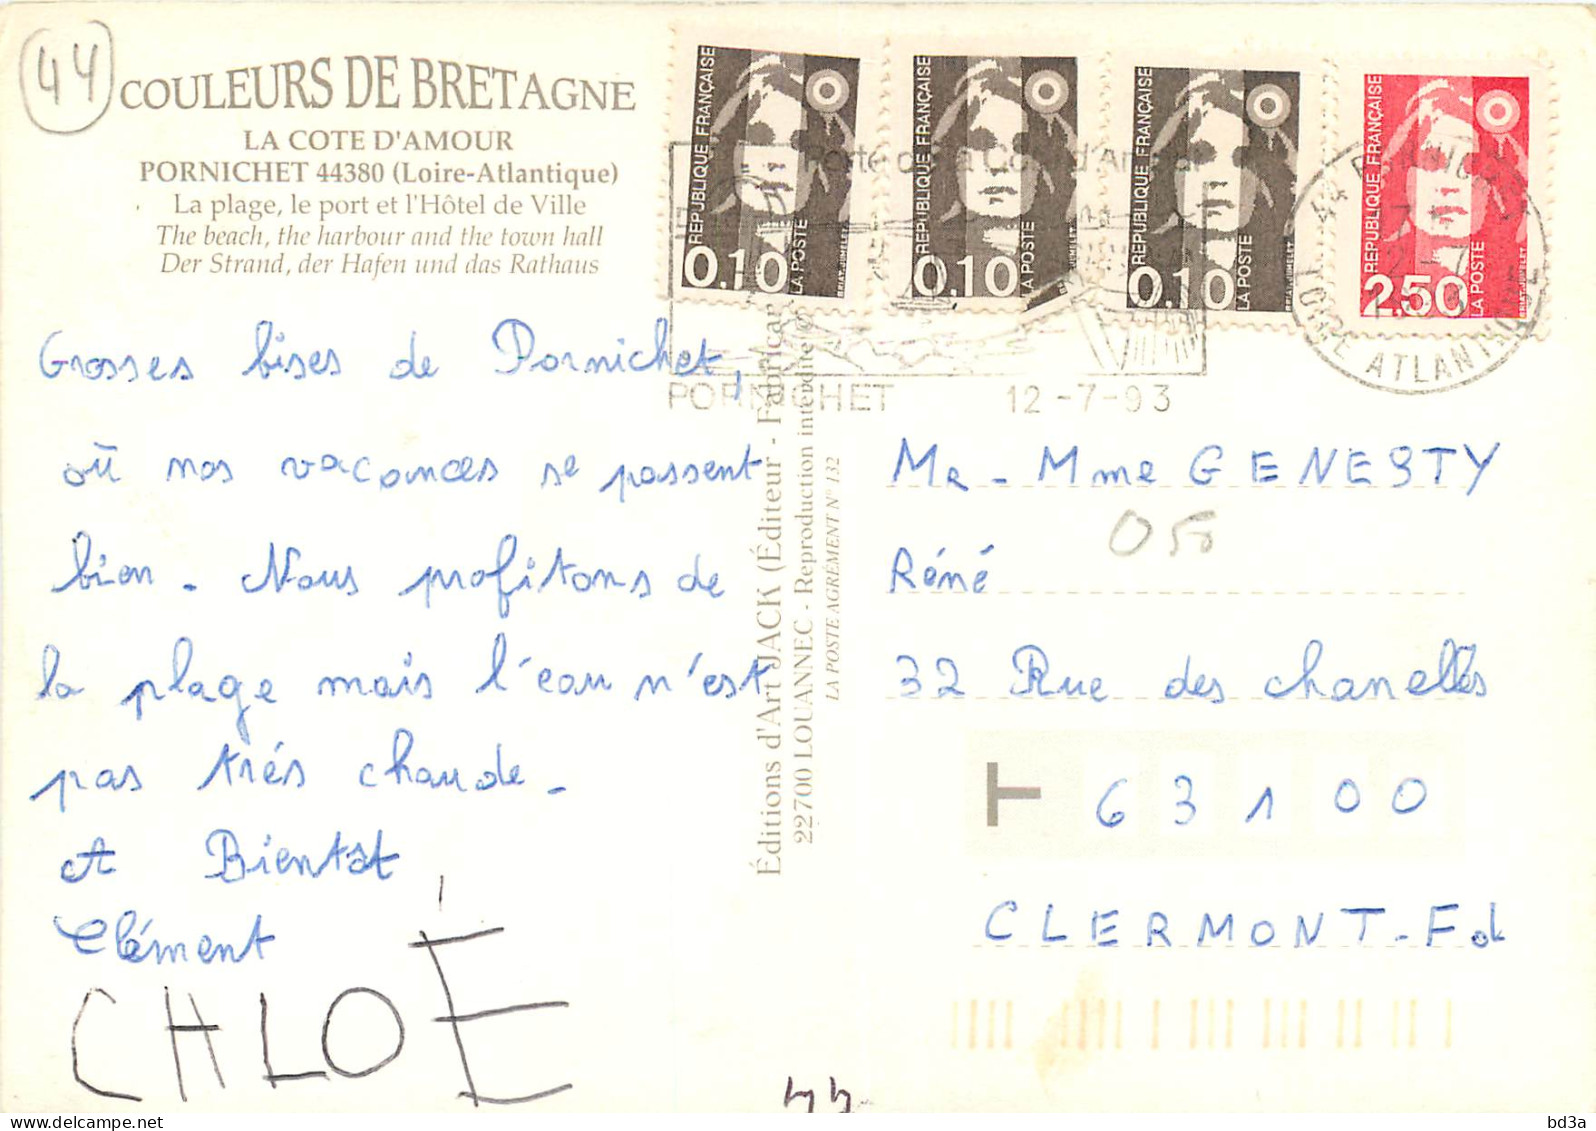 44
COULEURS DE BRETAGNE
LA COTE D'AMOUR
PORNICHET 44380 (Loire-Atlantique)
La plage, le port et l'Hôtel de Ville
The beach, the harbour and the town hall
Der Strand, der Hafen und das Rathaus
REPUBLIQUE FRANÇAISE
0,10
LA POSTE
BRIAT.JUMELET
REPUBLIQUE FRANÇAISE
0,10
LA POSTE
BRIAT.JUMELET
REPUBLIQUE FRANÇAISE
0,10
LA POSTE
BRIAT.JUMELET
REPUBLIQUE FRANÇAISE
2,50
LA POSTE
BRIAT.JUMELET
PORNICHET 12-7-93
44 PORNICHET
LOIRE ATLANTIQUE
Grosses bises de Pornichet,
où nos vacances se passent
bien. Nous profitons de
la plage mais l'eau n'est
pas trés chaude.
A Bientot
Clément
CHLOÉ
Éditions d'Art JACK (Éditeur - Fabricant
22700 LOUANNEC - Reproduction interdite
LA POSTE AGRÉMENT N° 132
Mr - Mme GENESTY
Réné
32 Rue des chanelles
T 63100
CLERMONT-Fd
44
bd3a